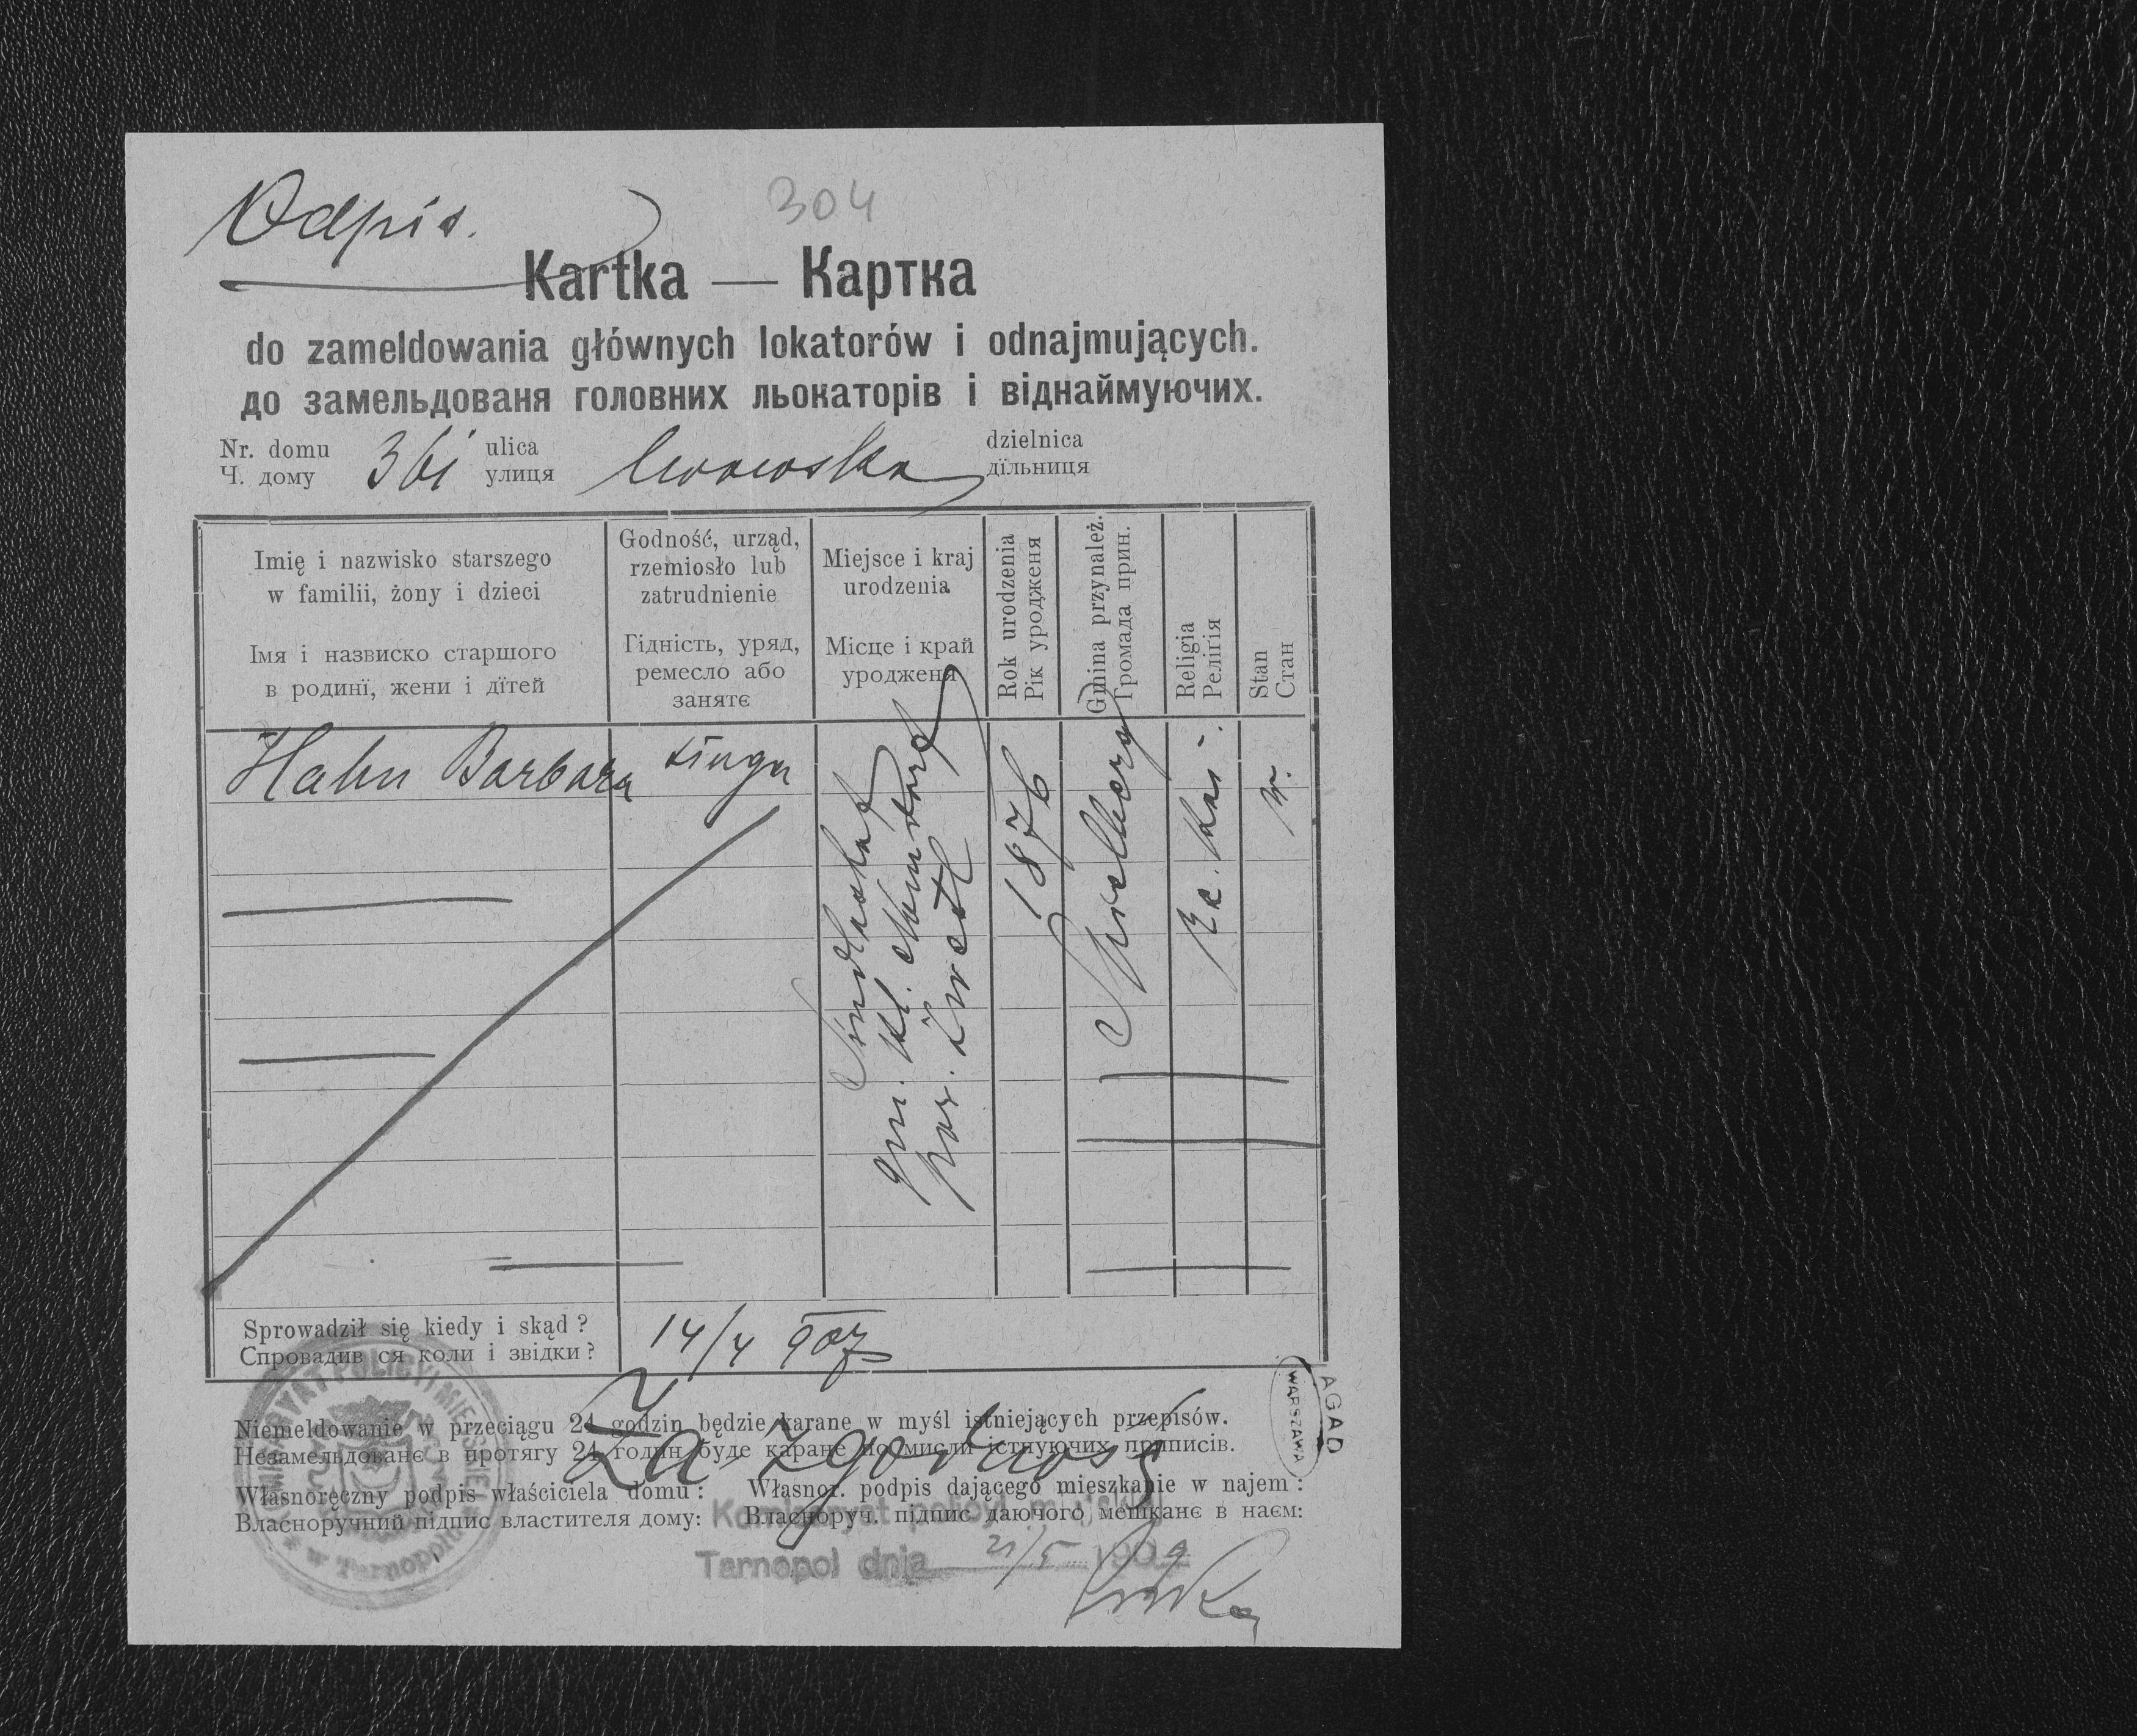 Odpis.
304
Kartka — Картка
do zameldowania głównych lokatorów i odnajmujących.
до замельдованя головних льокаторів і віднаймуючих.
Nr. domu ulica Lwowska dzielnica
Ч. дому улиця дїльниця
Imię i nazwisko starszego
w familii, żony i dzieci
Імя і назвиско старшого
в родинї, жени і дїтей
Godność, urząd,
rzemiosło lub
zatrudnienie
Гідність, уряд,
ремесло або
занятє
Miejsce i kraj
urodzenia
Місце і край
уродженя
Rok urodzenia
Рік уродженя
Gmina przynależ.
Громада прин.
Religia
Релїґія
Stan
Стан
Hahn Barbara
sługa
gm.
pow.
1876
Rz. kat.
w.
Sprowadził się kiedy i skąd?
Спровадив ся коли і звідки?
14/4 907
Niemeldowanie w przeciągu 24 godzin będzie karane w myśl istniejących przepisów.
Незамельдованє в протягу 24 годин буде каране по мисли істнуючих приписів.
Za zgodność
Własnoręczny podpis właściciela domu: Własnor. podpis dającego mieszkanie w najem:
Власноручний підпис властителя дому: Власноруч. підпис даючого мешканє в наєм:
Komisaryat policyi miejskiej
Tarnopol dnia 21/5 1909
KOMISARYAT POLICYI MIEJSKIEJ
w Tarnopolu
AGAD
WARSZAWA